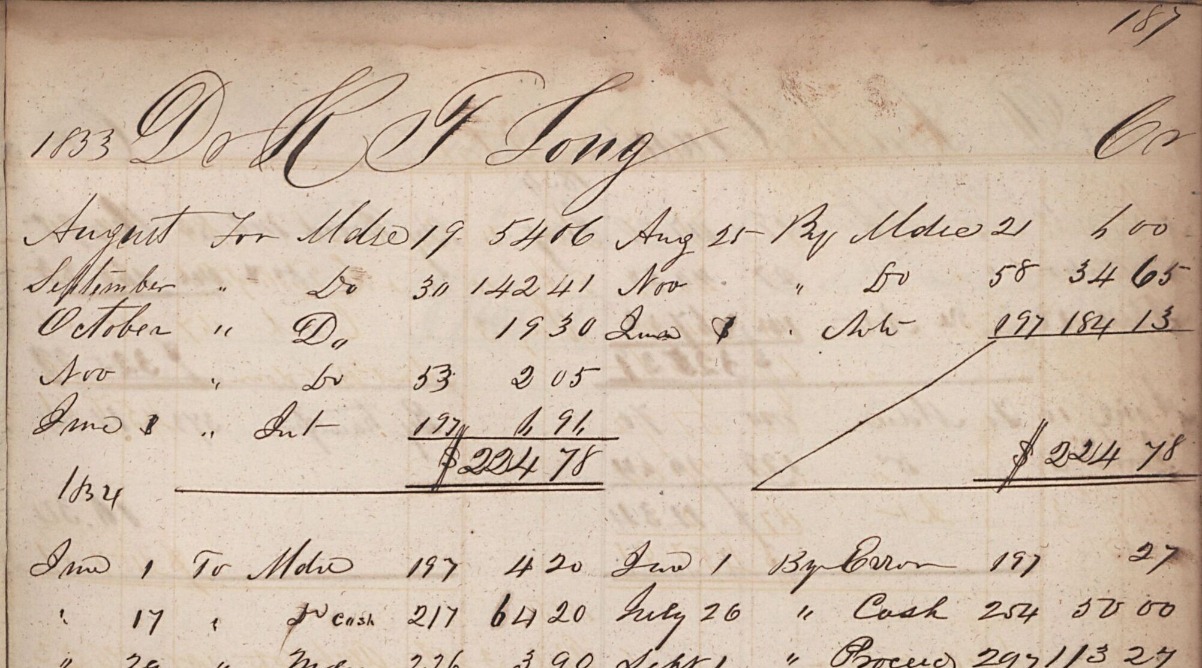 187
1833 Dr H F Long Cr
August For Mdse 19 54 06 Aug 25 By Mdse 21 6 00
September " Do 30 142 41 Nov " Do 58 34 65
October " Do 19 30 June 1 " Note 197 184 13
Nov " Do 53 2 05
June 1 " Int 197 6 96
$224 78 $224 78
1834
June 1 To Mdse 197 4 20 June 1 By Error 197 27
" 17 " Do Cash 217 64 20 July 26 " Cash 254 50 00
" 29 " Mdse 226 3 90 Sept 1 " Proceeds 297 113 27